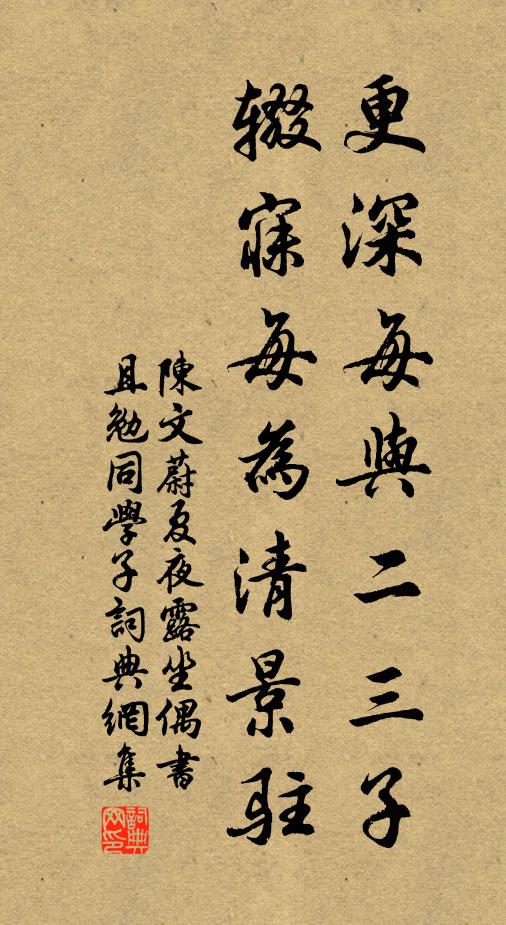 更深每與二三子
辍寐每為清景駐
陳文蔚夏夜露坐偶書
且勉同學子詞典網集
詞典网印